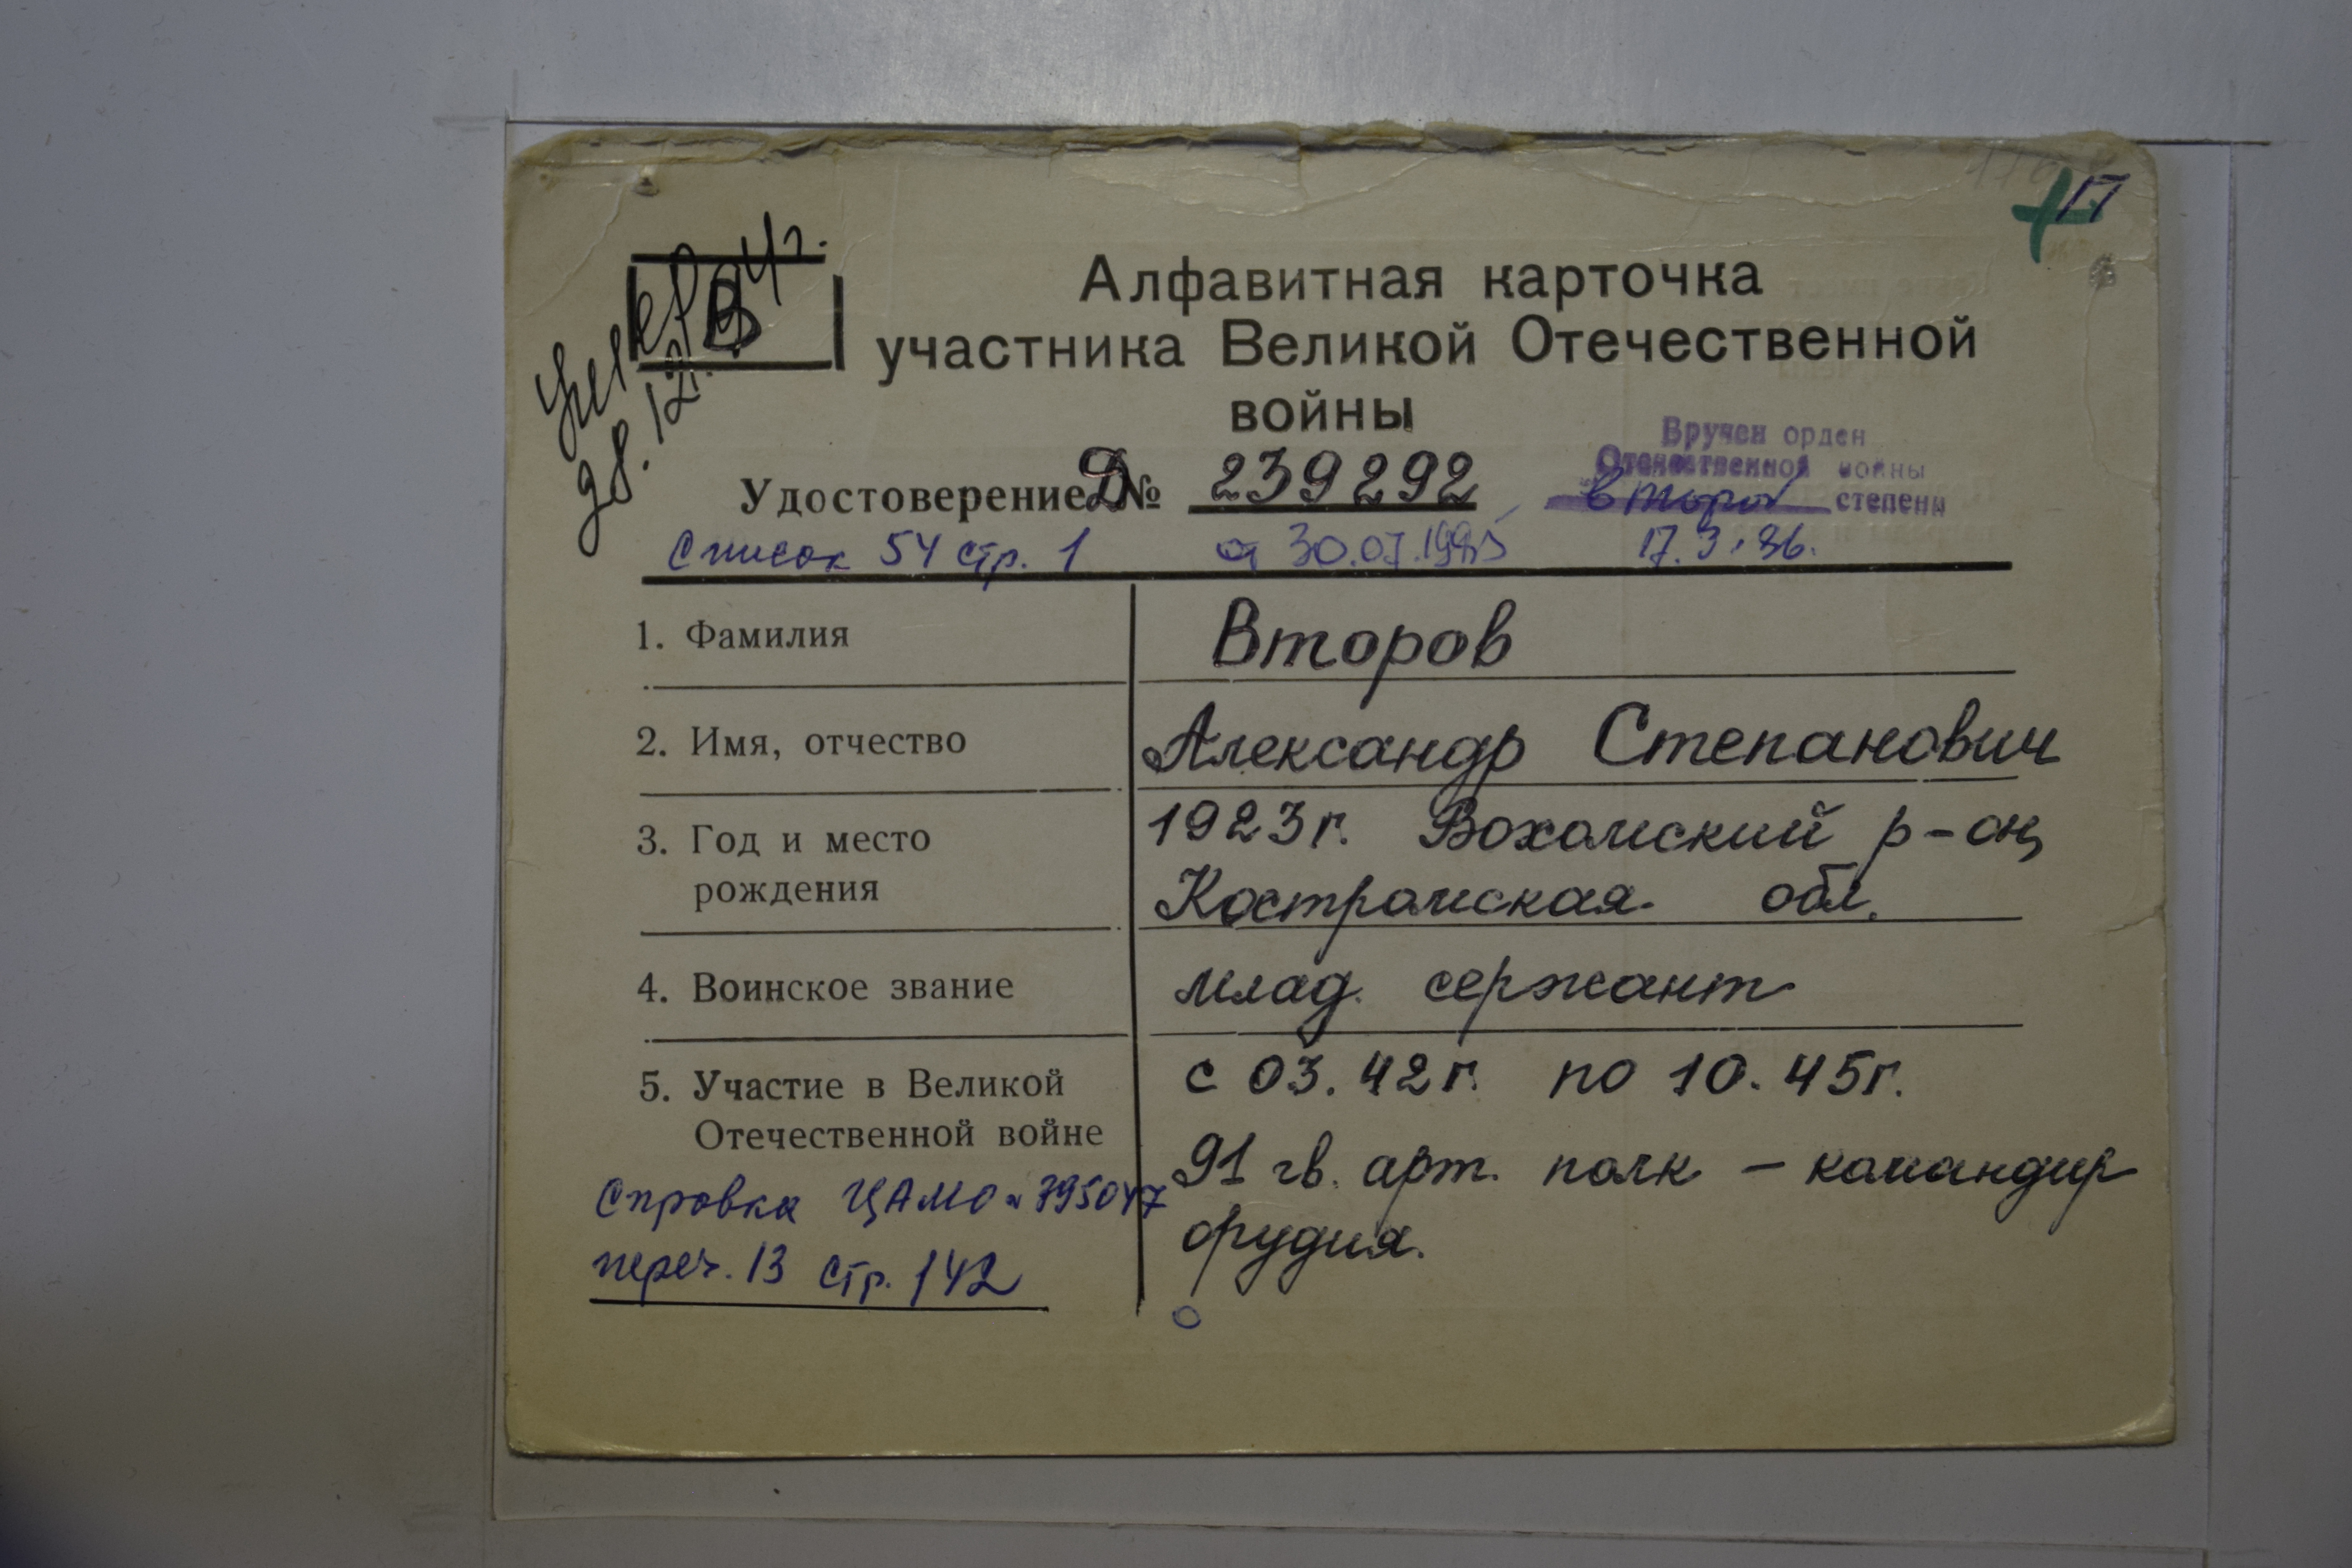 умер
28.12.94г.
В
П
Алфавитная карточка
участника Великой Отечественной
войны
Вручен орден
Отечественной войны
второй степени
17.3.86.
Удостоверение Д № 239292
Список 54 стр. 1
от 30.07.1985
1. Фамилия
Второв
2. Имя, отчество
Александр Степанович
3. Год и место
рождения
1923г. Вохомский р-он,
Костромская обл.
4. Воинское звание
млад. сержант
5. Участие в Великой
Отечественной войне
с 03.42г. по 10.45г.
91 гв. арт. полк – командир
орудия.
Справка ЦАМО № 795047
переч. 13 стр. 142